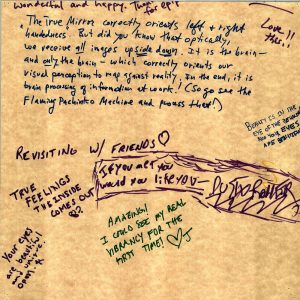 wonderful and happy.
The True Mirror correctly orients left + right
handedness. But did you know that optically,
we receive all images upside down. It is the brain -
and only the brain - which correctly orients our
visual perception to map against reality. In the end, it is
brain processing of information at work! (So go see the
Flaming Pachinko Machine and process that!)
Love it
this!!
Beauty is in the
eye of the beholder
and your eyes
are beautiful
Revisiting w/ Friends ♡
If you met you
would you like you -
True
Feelings
The inside
comes out
Amazing!
I could see my real
vibrancy for the
first time! ♡J
Your eyes
are beautiful
and was.